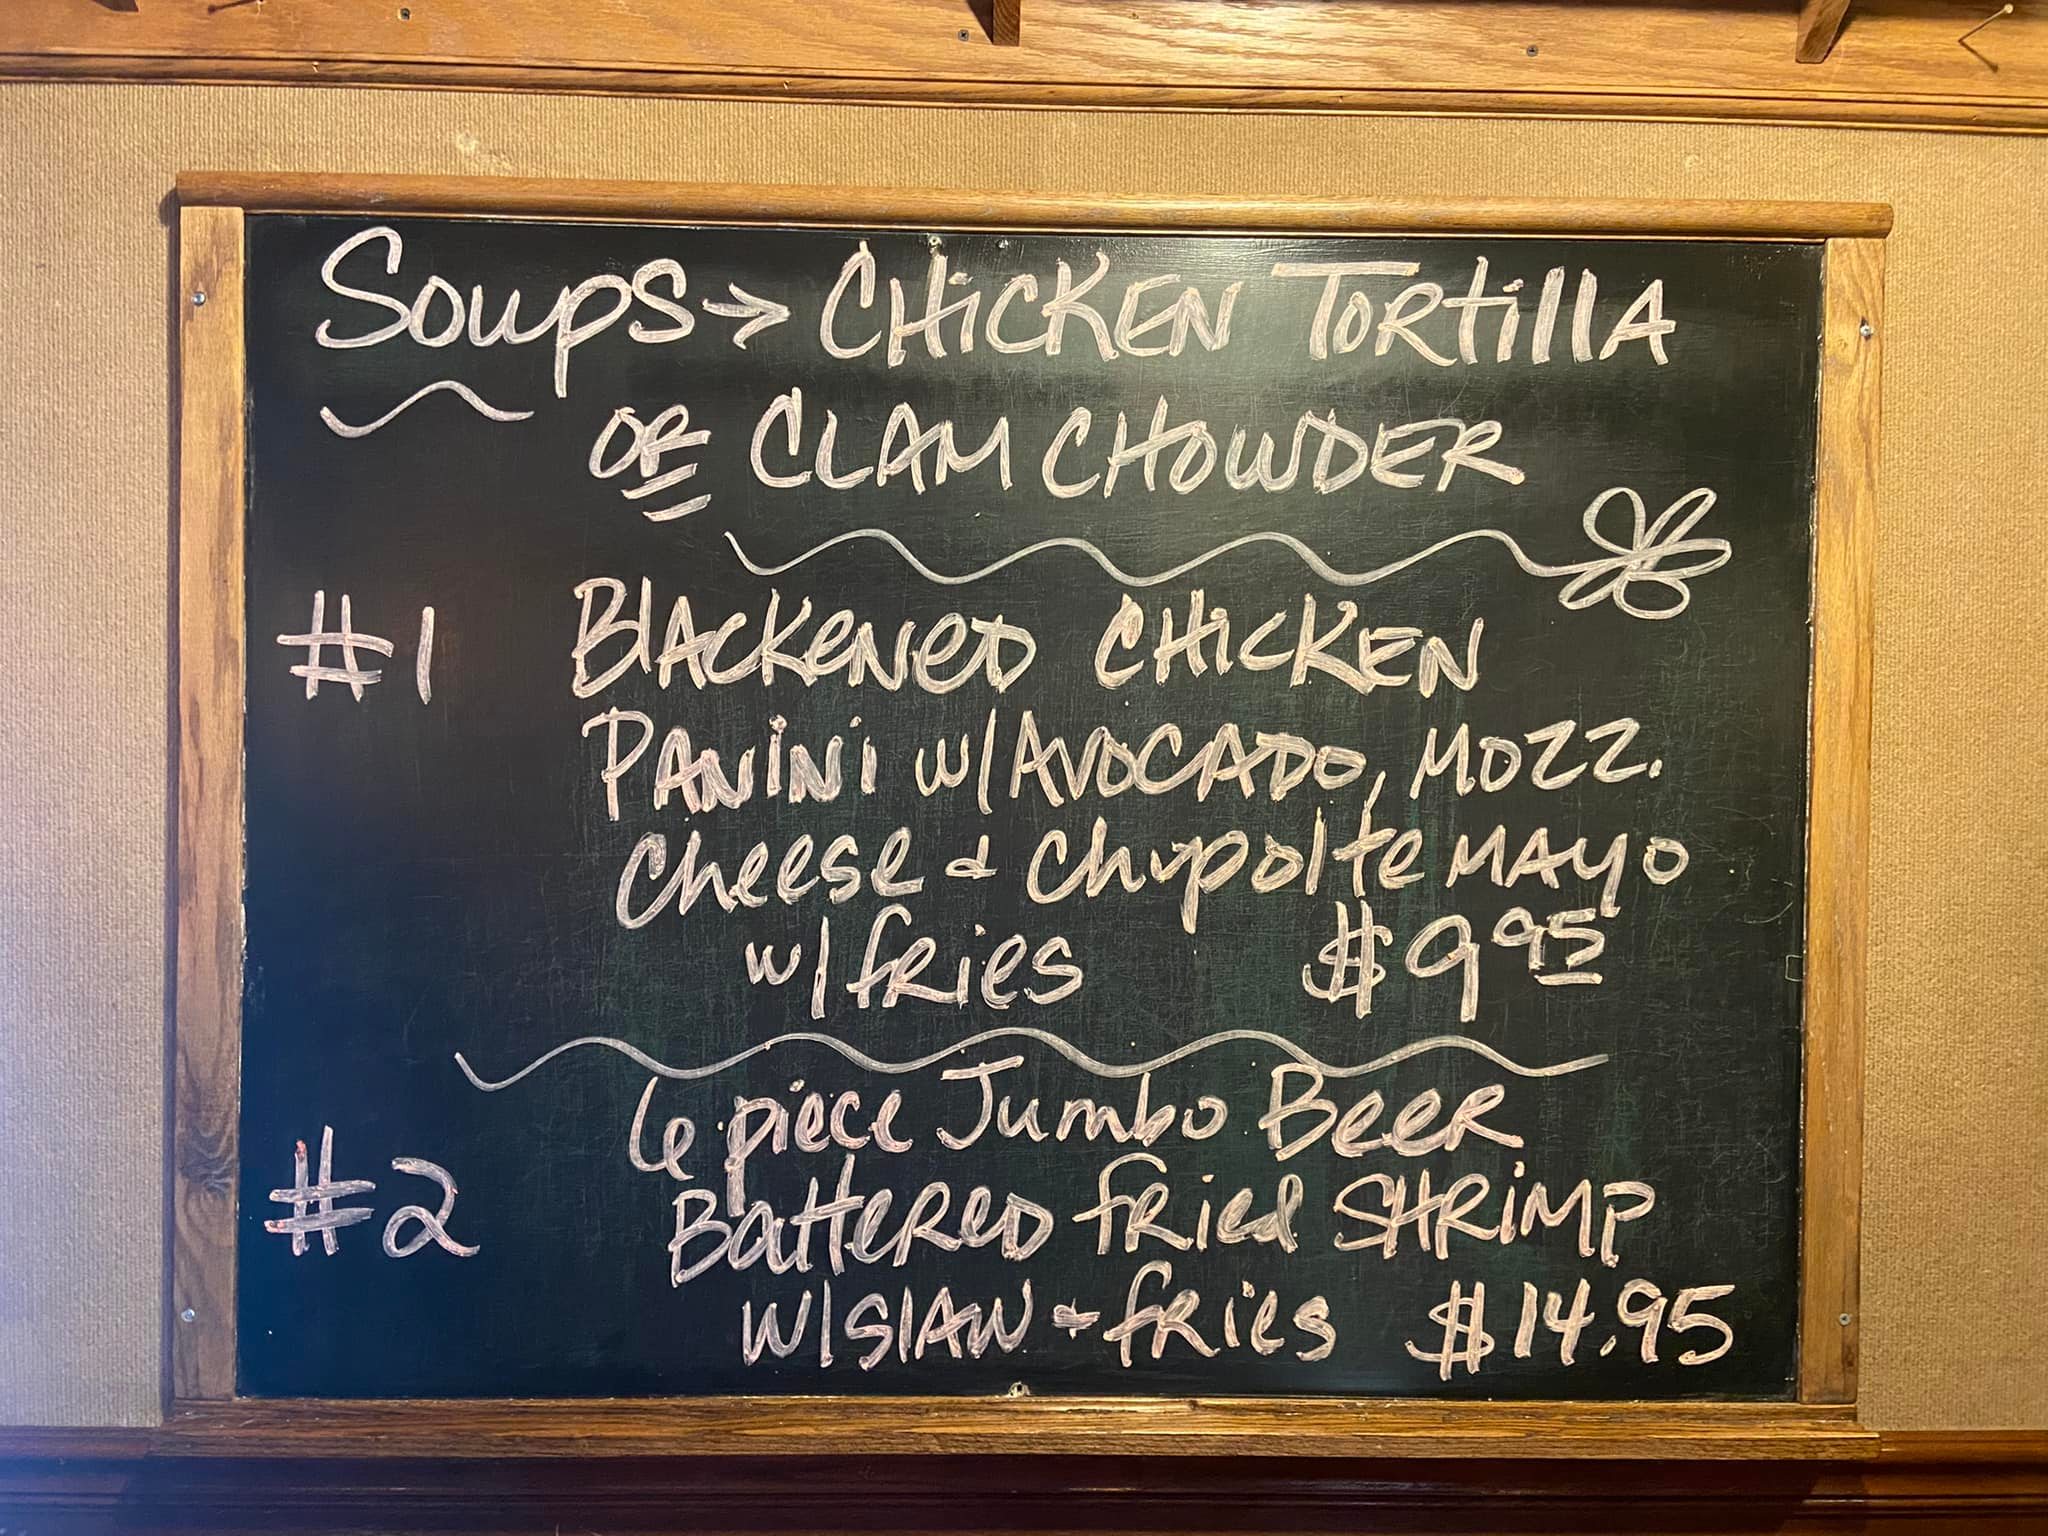 Soups → CHiCKEN TORtillA
OR CLAM CHOWDER
#1 BlACKeNeD CHiCKEN
PANiNi w/AVOCADO, MOZZ.
Cheese & Chipolte MAYO
w/fRies $9.95
6 piece Jumbo BeeR
#2 BatteReD fRied SHRiMP
W/SlAW & fRies $14.95